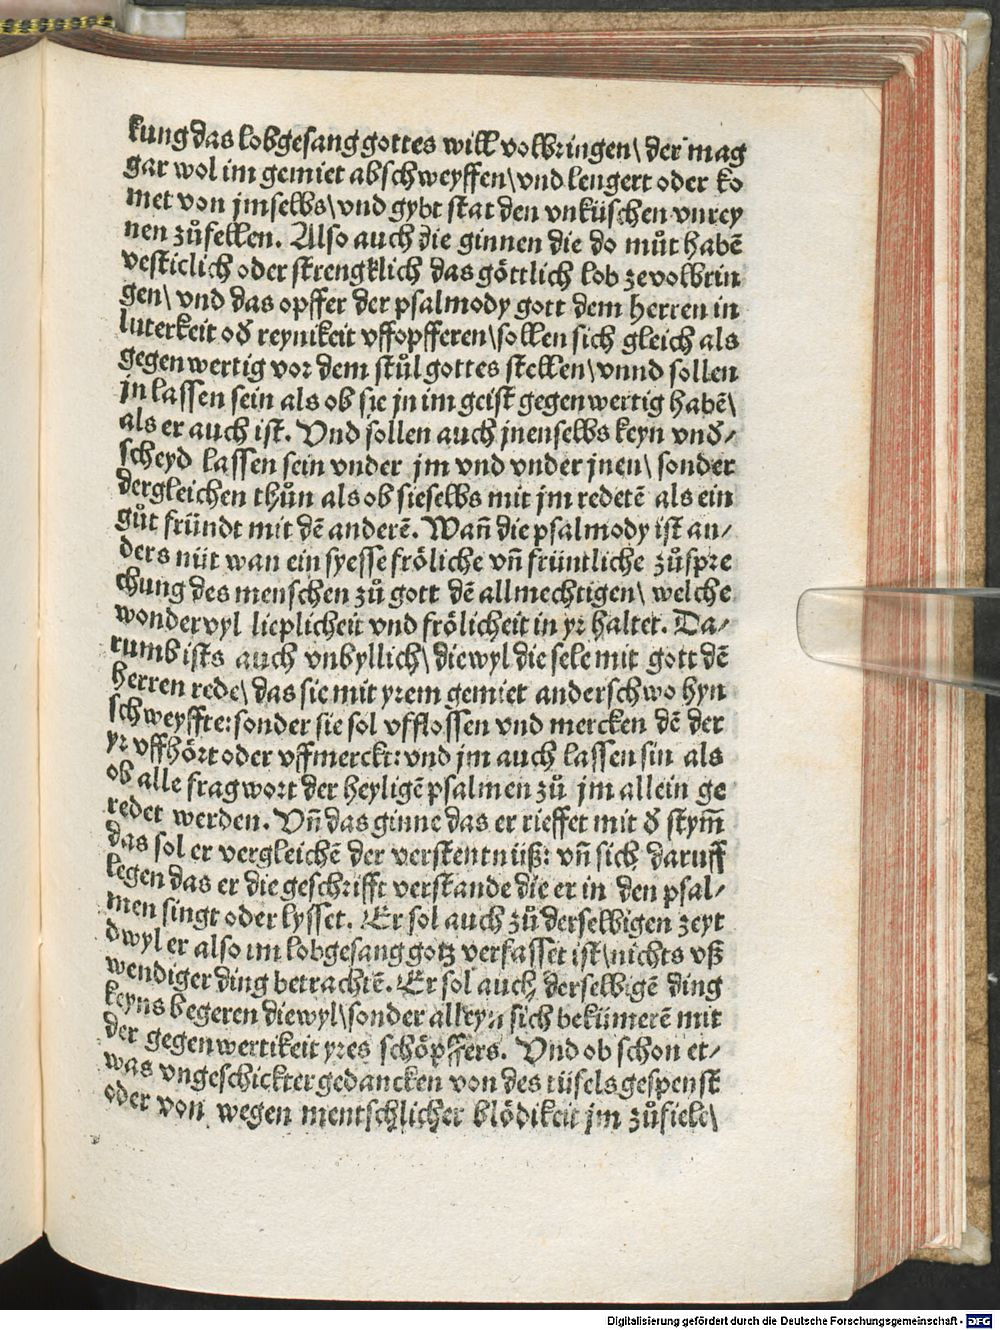 kung das lobgesang gottes will volbringen\ der mag
gar wol im gemiet abschweyffen\ vnd lengert oder ko
met von jmselbs\ vnd gybt stat den vnküschen vnrey
nen zůfellen. Also auch die ginnen die do můt habē
vesticlich oder strengklich das göttlich lob ze volbrin
gen\ vnd das opffer der psalmody gott dem herren in
luterkeit oð reynikeit vffopfferen\ sollen sich gleich als
gegenwertig vor dem stůl gottes stellen\ vnnd sollen
jn lassen sein als ob sie jn im geist gegenwertig habē\
als er auch ist. Vnd sollen auch jnenselbs keyn vnð⸗
scheyd lassen sein vnder jm vnd vnder jnen\ sonder
dergleichen thůn als ob sieselbs mit jm redetē als ein
gůt fründt mit dē anderē. Wañ die psalmody ist an⸗
ders nüt wan ein syesse fröliche vñ früntliche zůspre
chung des menschen zů gott dē allmechtigen\ welche
wonder vyl lieplicheit vnd frölicheit in yr haltet. Da⸗
rumb ists auch vnbyllich\ die wyl die sele mit gott dē
herren rede\ das sie mit yrem gemiet anderschwo hyn
schweyffte: sonder sie sol vfflossen vnd mercken dē der
yr vffhört oder vffmerckt: vnd jm auch lassen sin als
ob alle fragwort der heyligē psalmen zů jm allein ge
redet werden. Vñ das ginne das er rieffet mit ð stym̄
das sol er vergleichē der verstentnüß: vñ sich daruff
legen das er die geschrifft verstande die er in den psal⸗
men singt oder lysset. Er sol auch zů derselbigen zeyt
dwyl er also im lobgesang gotz verfasset ist\ nichts vß
wendiger ding betrachtē. Er sol auch derselbigē ding
keyns begeren diewyl\ sonder alleyn sich bekümerē mit
der gegenwertikeit yres schöpffers. Vnd ob schon et⸗
was vngeschickter gedancken von des tüfels gespenst
oder von wegen mentschlicher blödikeit jm zůfiele\
Digitalisierung gefördert durch die Deutsche Forschungsgemeinschaft - DFG